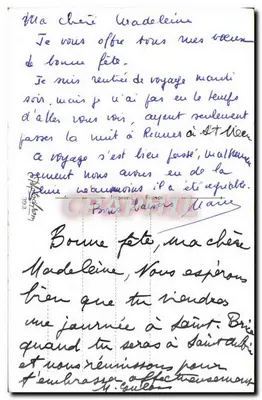 Ma chère Madeleine
Je vous offre tous mes vœux
de bonne fête.
Je suis rentrée de voyage mardi
soir, mais je n'ai pas eu le temps
d'aller vous voir, ayant seulement
passer la nuit à Rennes à St
voyage s'est bien passé, malheureu
sement nous avons eu de la
néanmoins il a été agréable.
Bons baisers
Bonne fête, ma chère
Madeleine, Nous espérons
bien que tu viendras
une journée à Saint. Bri
quand tu seras à Saint
et nous réunissons pour
t'embrasser affectueusement
M.